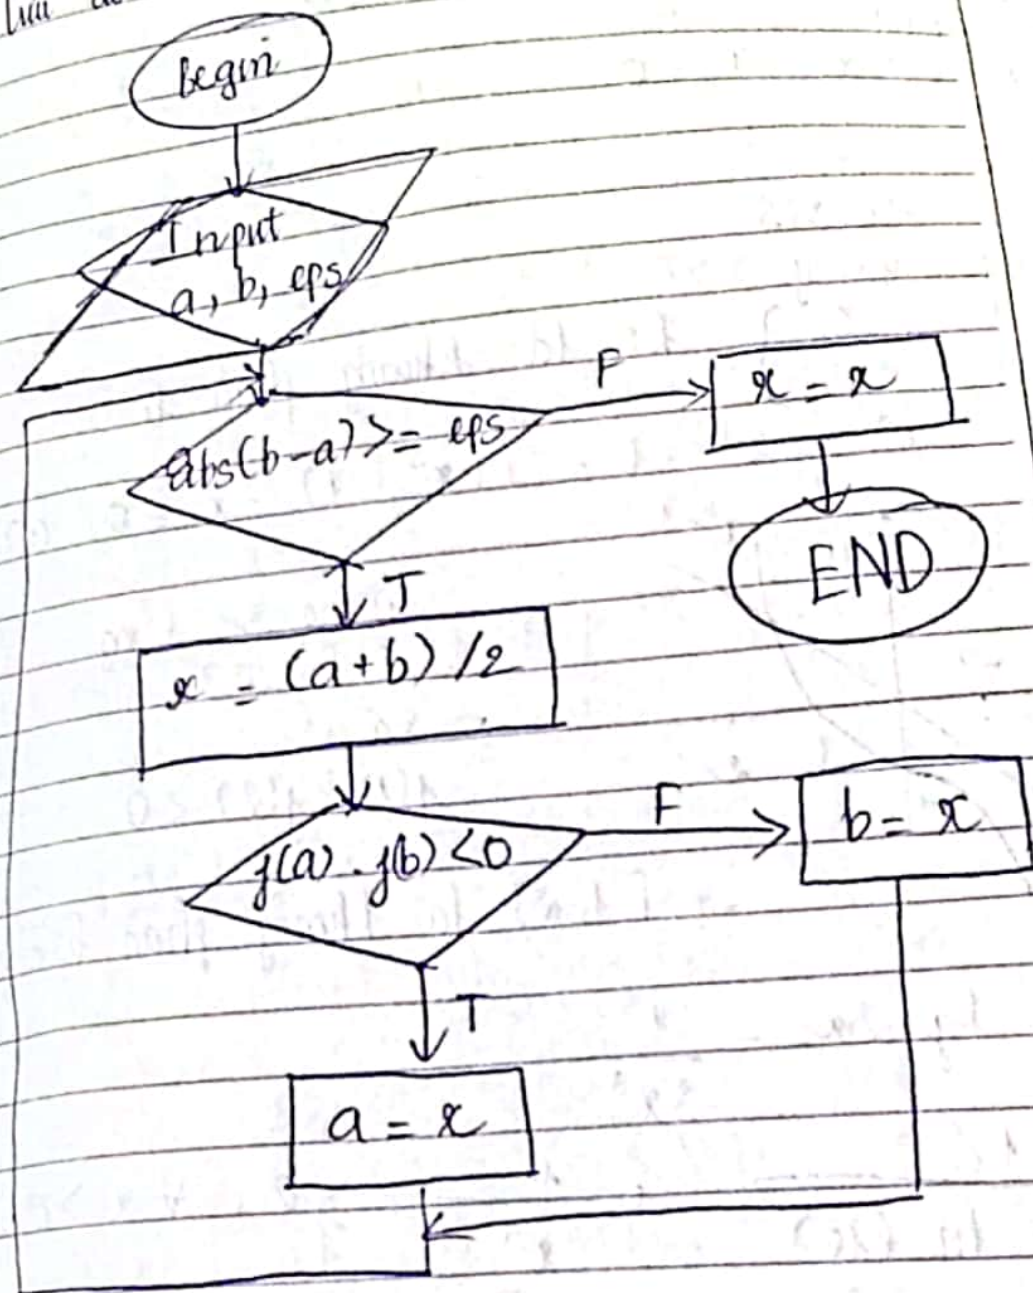 begin
Input
a, b, eps
abs(b-a) >= eps
F
x = x
END
T
x = (a+b) /2
f(a) . f(b) < 0
F
b = x
T
a = x